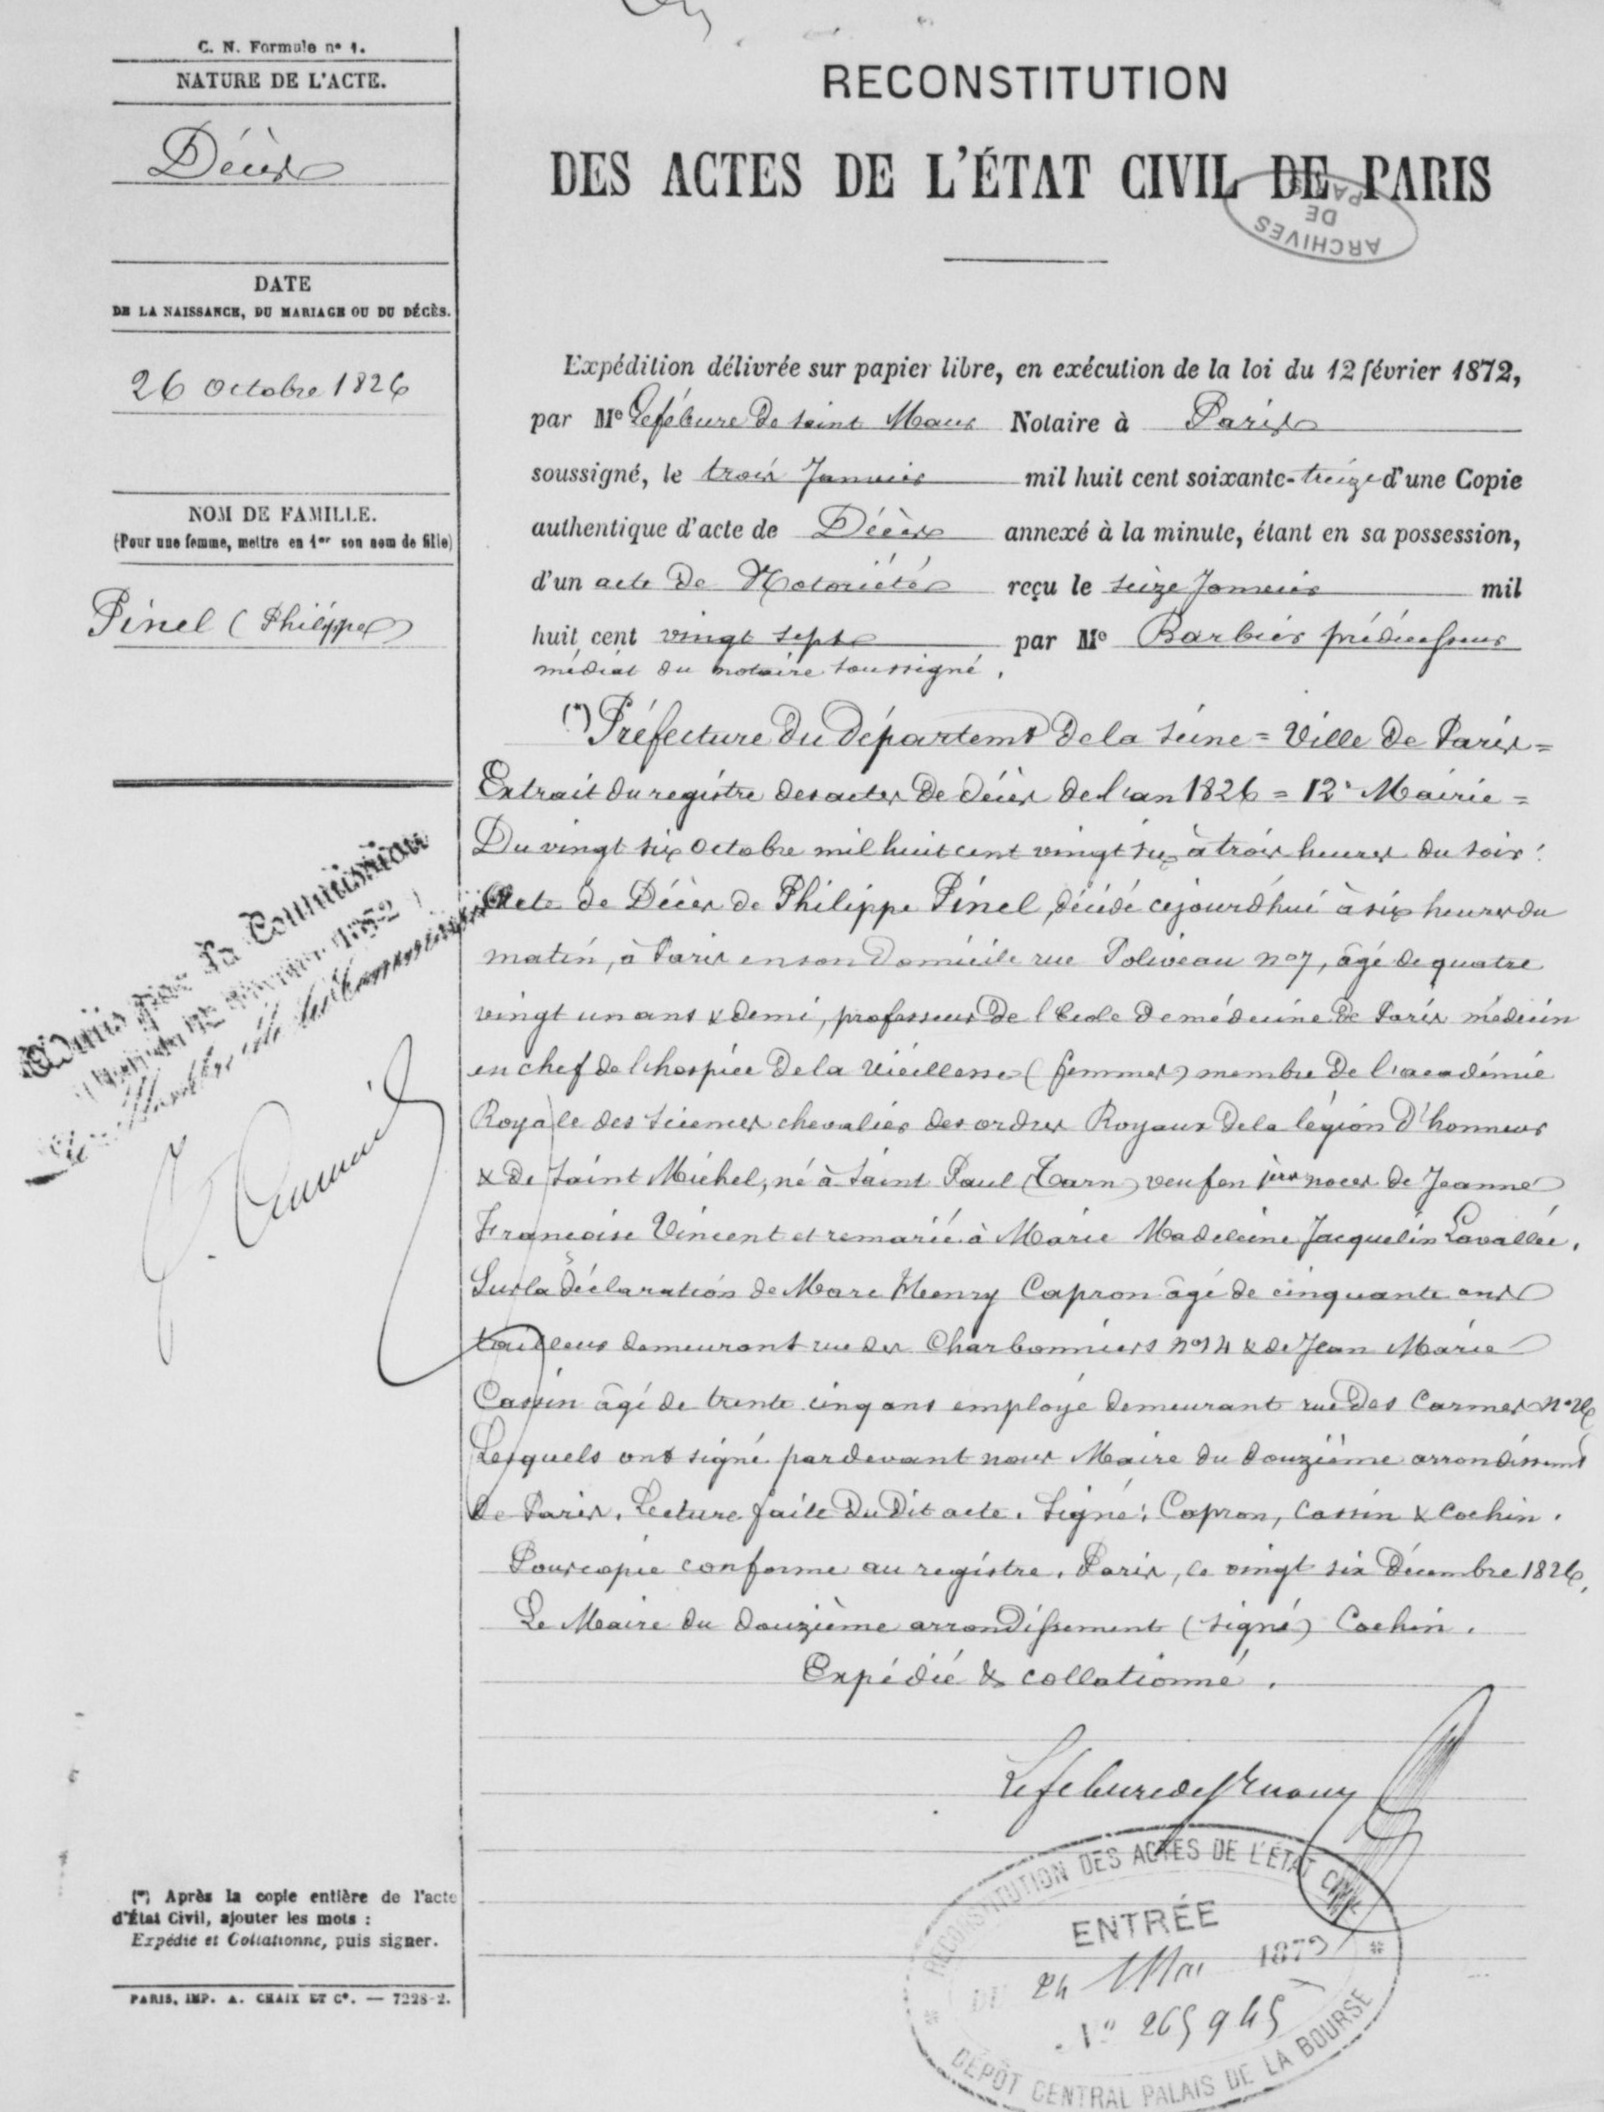 C. N. Formule n° 1.
NATURE DE L'ACTE.
Décès
DATE
DE LA NAISSANCE, DU MARIAGE OU DU DÉCÈS.
26 octobre 1826
NOM DE FAMILLE.
(Pour une femme, mettre en 1er son nom de fille)
Pinel (Philippe)
Admis par la Commission
(Loi du 12 Février 1872)
Le Membre de la Commission
(*) Après la copie entière de l'acte
d'État Civil, ajouter les mots :
Expédié et Collationné, puis signer.
PARIS, IMP. A. CHAIX ET Cie. — 7228-2.
RECONSTITUTION
DES ACTES DE L'ÉTAT CIVIL DE PARIS
ARCHIVES
DE
PARIS
Expédition délivrée sur papier libre, en exécution de la loi du 12 février 1872,
par Me Lefébure de Saint Maur Notaire à Paris
soussigné, le trois Janvier mil huit cent soixante-treize d'une Copie
authentique d'acte de Décès annexé à la minute, étant en sa possession,
d'un acte de Notoriété reçu le seize Janvier mil
huit cent vingt sept par Me Barbier prédécesseur
médiat du notaire soussigné.
(*) Préfecture du Départemt de la Seine = Ville de Paris =
Extrait du registre des actes de décès de l'an 1826 = 12e Mairie =
Du vingt six octobre mil huit cent vingt six à trois heures du soir.
Acte de Décès de Philippe Pinel, décédé cejourd'hui à six heures du
matin, à Paris en son Domicile rue Poliveau no 7, âgé de quatre
vingt un ans & demi, professeur de l'Ecole de médecine de Paris médecin
en chef de l'hospice de la Vieillesse (femmes) membre de l'académie
Royale des Sciences chevalier des ordres Royaux de la légion d'honneur
& de Saint Michel, né à Saint Paul (Tarn) veuf en 1ères noces de Jeanne
Françoise Vincent et remarié à Marie Madeleine Jacquelin Lavallée.
Sur la déclaration de Marc Henry Capron âgé de cinquante ans
tailleur demeurant rue des Charbonniers no 14 & de Jean Marie
Cassin âgé de trente cinq ans employé demeurant rue des Carmes no 26
Lesquels ont signé pardevant nous Maire du douzième arrondissemt
de Paris. Lecture faite du dit acte. Signé: Capron, Cassin & Cochin.
Pour copie conforme au registre. Paris, le vingt six Décembre 1826.
Le Maire du douzième arrondissement (signé) Cochin.
Expédié & collationné.
Lefebure de St Maur
RECONSTITUTION DES ACTES DE L'ÉTAT CIVIL
ENTRÉE
DU 24 Mai 1873
No 265945
DÉPÔT CENTRAL PALAIS DE LA BOURSE